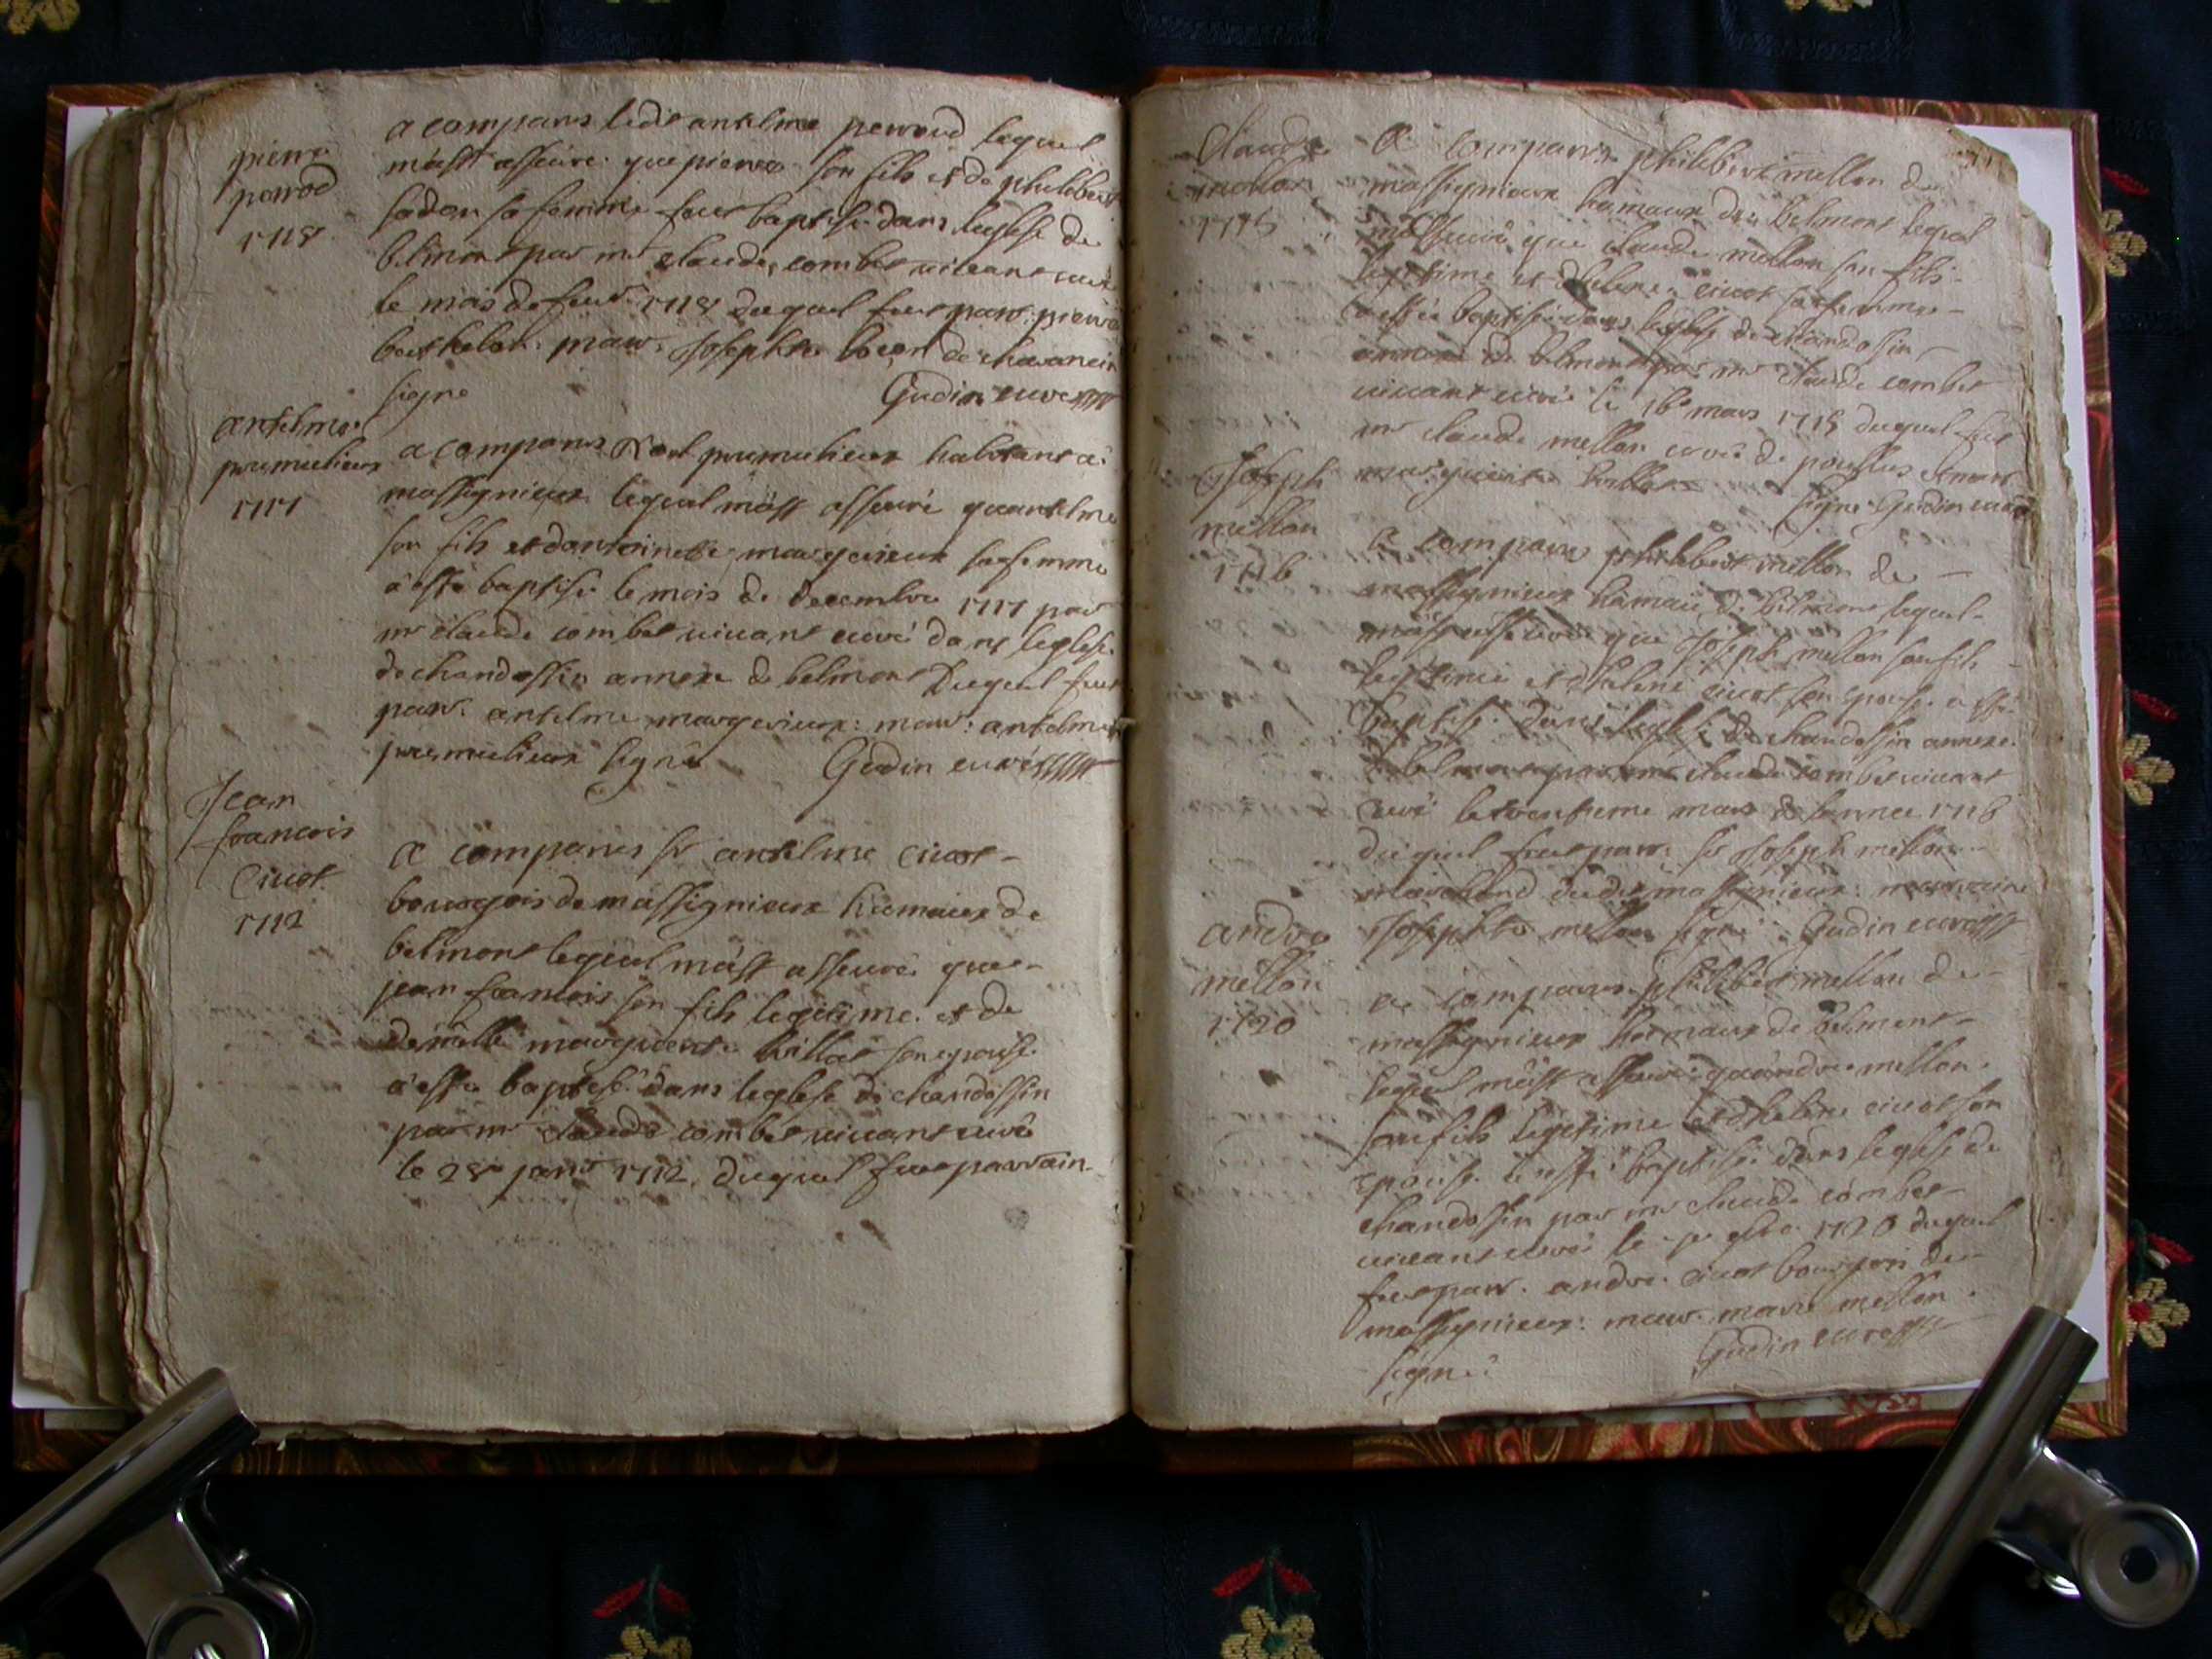 pierre
perrod
1718
a comparus ledit antelme perroud lequel
m'a asseuré que pierre son fils et de philiberte
sa femme fut baptisé dans leglise de
belmont par mr claude combet vivant curé
le mois de feur 1718 duquel fut parr. pierre
berthelon marr. Josephte de chavancin
signe Gudin curé
antelme
prumulieux
1717
a comparus prumulieux habitant a
massignieux lequel m'a asseuré quantelme
son fils et dantoinette margerieux sa femme
a esté baptisé le mois de decembre 1717 par
mr claude combet vivant curé dans leglise
de chandossin annexe de belmont Duquel fut
parr. antelme margerieux: marr: antelme
prumulieux signé Gudin curé
Jean
francois
Civot
1712
a comparus sr antelme Civot
bourgois de massignieux hameaux de
belmont lequel m'a asseuré que
jean francois son fils legitime et de
demlle marguerite billat son epouse
a esté baptisé dans leglise de chandossin
par mr claude combet vivant curé
le 28e janr 1712, duquel fut parrain
Claude
mellon
1715
a comparus philibert mellon de
massignieux hameaux de belmont lequel
m'a asseuré que claude mellon son fils
legitime et dhelene Civot sa femme
a esté baptisé dans leglise de chandossin
annexe de belmont par mr claude combet
vivant curé le 16e mars 1715 duquel fut
mr claude mellon curé de
marguerite signe Gudin curé
Joseph
mellon
1716
a comparus philibert mellon de
massignieux hamaux de belmont lequel
m'a asseuré que Joseph mellon son fils
legitime et dhelene civot son epouse a esté
baptisé dans leglise de chandossin annexe
de belmont par mr claude combet vivant
curé le trentieme mars de lannee 1716
duquel fut parr. sr Joseph mellon
marchand dudit massignieux: marraine
Josephte mellon signé Gudin curé
andre
mellon
1720
a comparus philibert mellon de
massignieux hameaux de belmont
lequel m'a asseuré quandre mellon
son fils legitime et dhelene civot son
epouse a esté baptisé dans leglise de
chandossin par mr claude combet
vivant curé le 1720 duquel
fut parr. andre civot bourgois de
massignieux: marr. marie mellon
signé Gudin curé